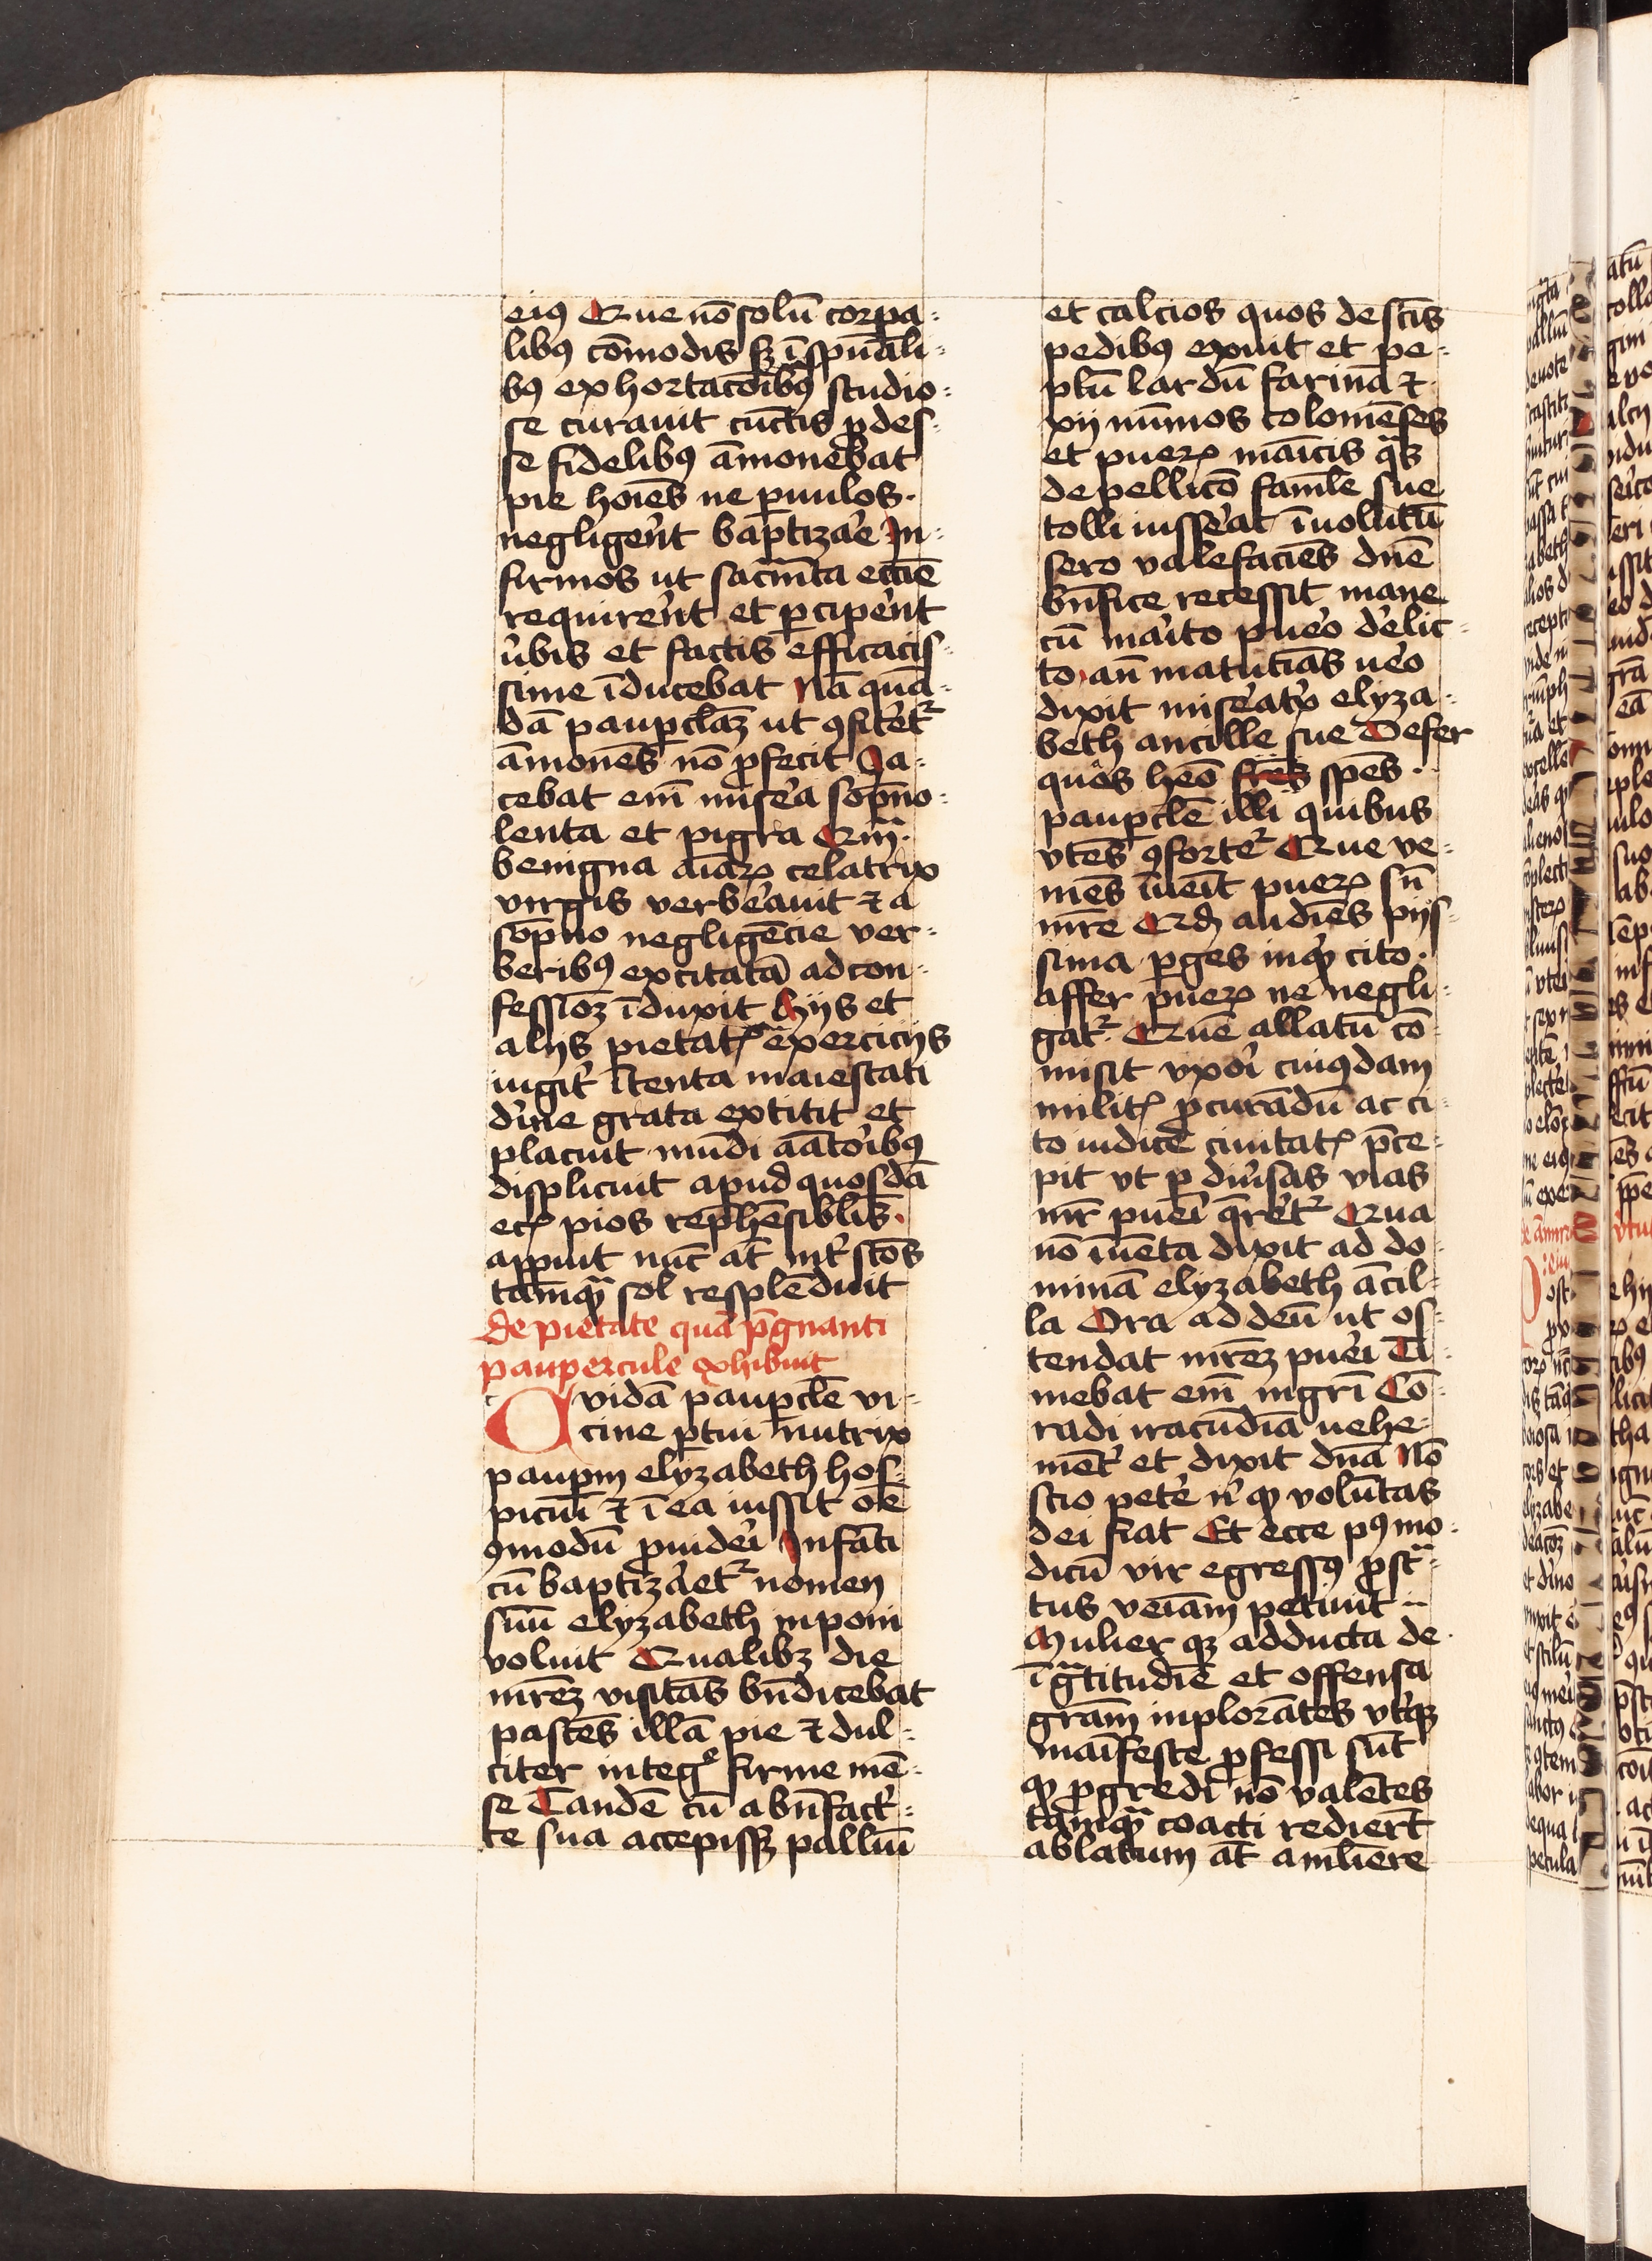 eiꝰ Que nō solū corpa-
libꝰ cōmodis sꝫ ī spūali-
bꝰ exhortacōībꝰ studio-
se curauit cūctis ꝓdes-
se fidelibꝰ āmonebat
pie hoīes ne ꝑuulos
negligerēt baptizare In-
firmos ut sacramēta eccīe
requirerēt et ꝑciperēt
ubis et factis efficacis-
sime īducebat Nā quā-
dā pauꝑclaꝫ ut ꝯfiterēt
āmonēs nō ꝓfecit Ja-
cebat em̄ misera sopno-
lenta et pigra Qm̄
benigna aīaꝝ celatrix
virgis verberauit ⁊ a
sōpno negligēcie ver-
beribꝰ excitatā ad con-
fessioēꝫ īduxit Hijs et
alijs pietatꝭ exercicijs
iugit̾ ītenta maiestati
diuīe grata extitit et
placuit mūdi aātoribꝰ
displicuit apud quosdā
ecꝭ pios rephēsiblīs
aꝑuit nūc at̄ int̾ scōs
tamqᷓ sol resplēduit
de pietate quā p̄gnanti
paupercule exhibuit
Quidā pauꝑclē vi-
cine ꝑtui nutrix
pauꝑm elyzabeth hos-
piciū ⁊ ī ea iussit om̄e
ꝯmodū ꝓuideri Infāti
cū baptizaret̾ nomen
suū elyzabeth inponi
voluit Qualibꝫ die
mr̄eꝫ visitās bn̄dicebat
pascēs illā pie ⁊ dul-
citer integͦ firme mē-
se Tandē cū a bn̄fact̾-
te sua accepissꝫ palliū
et calcios quos de scīs
pedibꝰ exuit et pe-
plū lardū farinā ⁊
xij nūmos colonienses
et pueꝝ maīcis qᷓs
de pellicō famle sue
tolli iusserat īuolutū
sero valefaciēs dn̄e
bn̄fice recessit mane
cū marito puero derelic-
to an̄ matutīas uero
dixit miseratͥx elyza-
beth ancille sue Defer
quōs heō spēs
pauꝑclē illi quibus
vtēs ꝯfortet̾ Que ve-
niēs īueīt pueꝝ sn̄
mr̄e Qđ audiēs pijs-
sima ꝑges inqͥt cito
affer pueꝝ ne negli-
gat̾ Quē allatū cō-
misit vxori cuiꝰdam
militꝭ ꝓcurādū ac ci-
to iudicē ciuitatꝭ p̄ce-
pit vt ꝑ diūsas vias
mr̄ pueri q̄reret̾ Qua
nō īuēta dixit ad do-
minā elyzabeth ācil-
la Ora ad deū ut os-
tendat mr̄eꝫ pueri Ti-
mebat em̄ mgr̄i Cō-
radi iracūdiā uehe-
mēt̾ et dixit dn̄a Nō
scio petere nͥ qͩ volūtas
dei fiat Et ecce pꝰ mo-
dicū vir egressꝰ ꝓstᷓ-
tus veīam petiuit
Mulier qꝫ adducta de
īgᷓtitudīe et offensa
gr̄am inplorātes vterqꝫ
maīfeste ꝓfessi sūt
qͩ ꝓgredi nō valētes
tamqᷓ coacti redierūt
ablatum at̄ a muliere